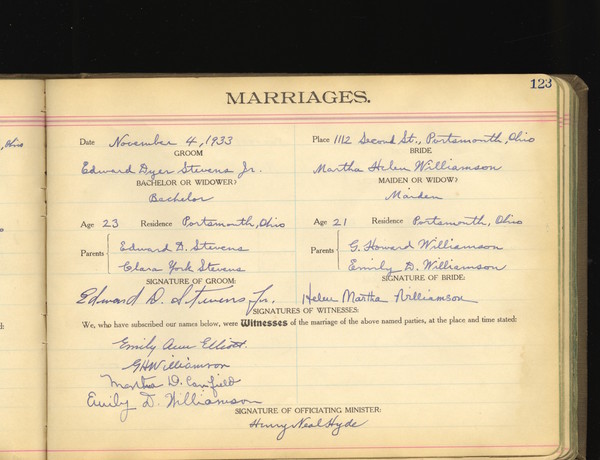 123
MARRIAGES.
, Ohio
Date November 4, 1933 Place 1112 Second St., Portsmouth, Ohio
GROOM BRIDE
Edward Dyer Stevens Jr. Martha Helen Williamson
BACHELOR OR WIDOWER? MAIDEN OR WIDOW?
Bachelor Maiden
Age 23 Residence Portsmouth, Ohio Age 21 Residence Portsmouth, Ohio
Parents Edward D. Stevens Parents G. Howard Williamson
Clara York Stevens Emily D. Williamson
SIGNATURE OF GROOM: SIGNATURE OF BRIDE:
Edward D. Stevens, Jr. Helen Martha Williamson
SIGNATURES OF WITNESSES:
We, who have subscribed our names below, were Witnesses of the marriage of the above named parties, at the place and time stated:
Emily Ann Elliott.
GHWilliamson
Martha D. Canfield
Emily D. Williamson
SIGNATURE OF OFFICIATING MINISTER:
Henry Neal Hyde